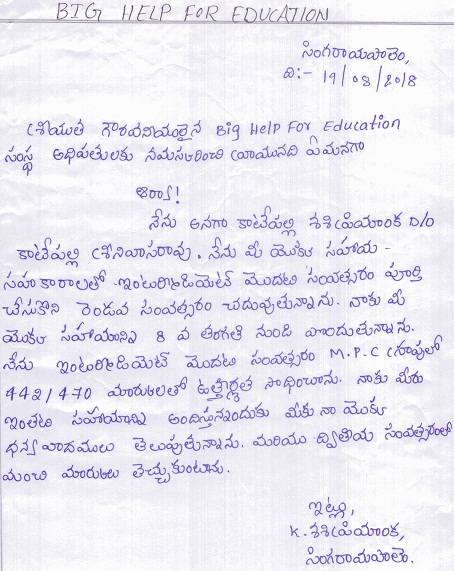 BIG HELP FOR EDUCATION
సింగరాయపాలెం,
ది:- 19/08/2018
శ్రీయుత గౌరవనీయులైన Big Help For Education
సంస్థ అధిపతులకు నమస్కరించి వ్రాయునది ఏమనగా
ఆర్యా!
నేను అనగా కాటేపల్లి శశిప్రియాంక D/O
కాటేపల్లి శ్రీనివాసరావు. నేను మీ యొక్క సహాయ -
సహకారాలతో ఇంటర్మీడియెట్ మొదటి సంవత్సరం పూర్తి
చేసుకొని రెండవ సంవత్సరం చదువుతున్నాను. నాకు మీ
యొక్క సహాయాన్ని 8 వ తరగతి నుండి పొందుతున్నాను.
నేను ఇంటర్మీడియెట్ మొదటి సంవత్సరం M.P.C గ్రూపులో
442/470 మార్కులతో ఉత్తీర్ణత సాధించాను. నాకు మీరు
ఇంతటి సహాయాన్ని అందిస్తున్నందుకు మీకు నా యొక్క
ధన్యవాదములు తెలుపుతున్నాను. మరియు ద్వితీయ సంవత్సరంలో
మంచి మార్కులు తెచ్చుకుంటాను.
ఇట్లు,
K. శశిప్రియాంక,
సింగరాయపాలెం.